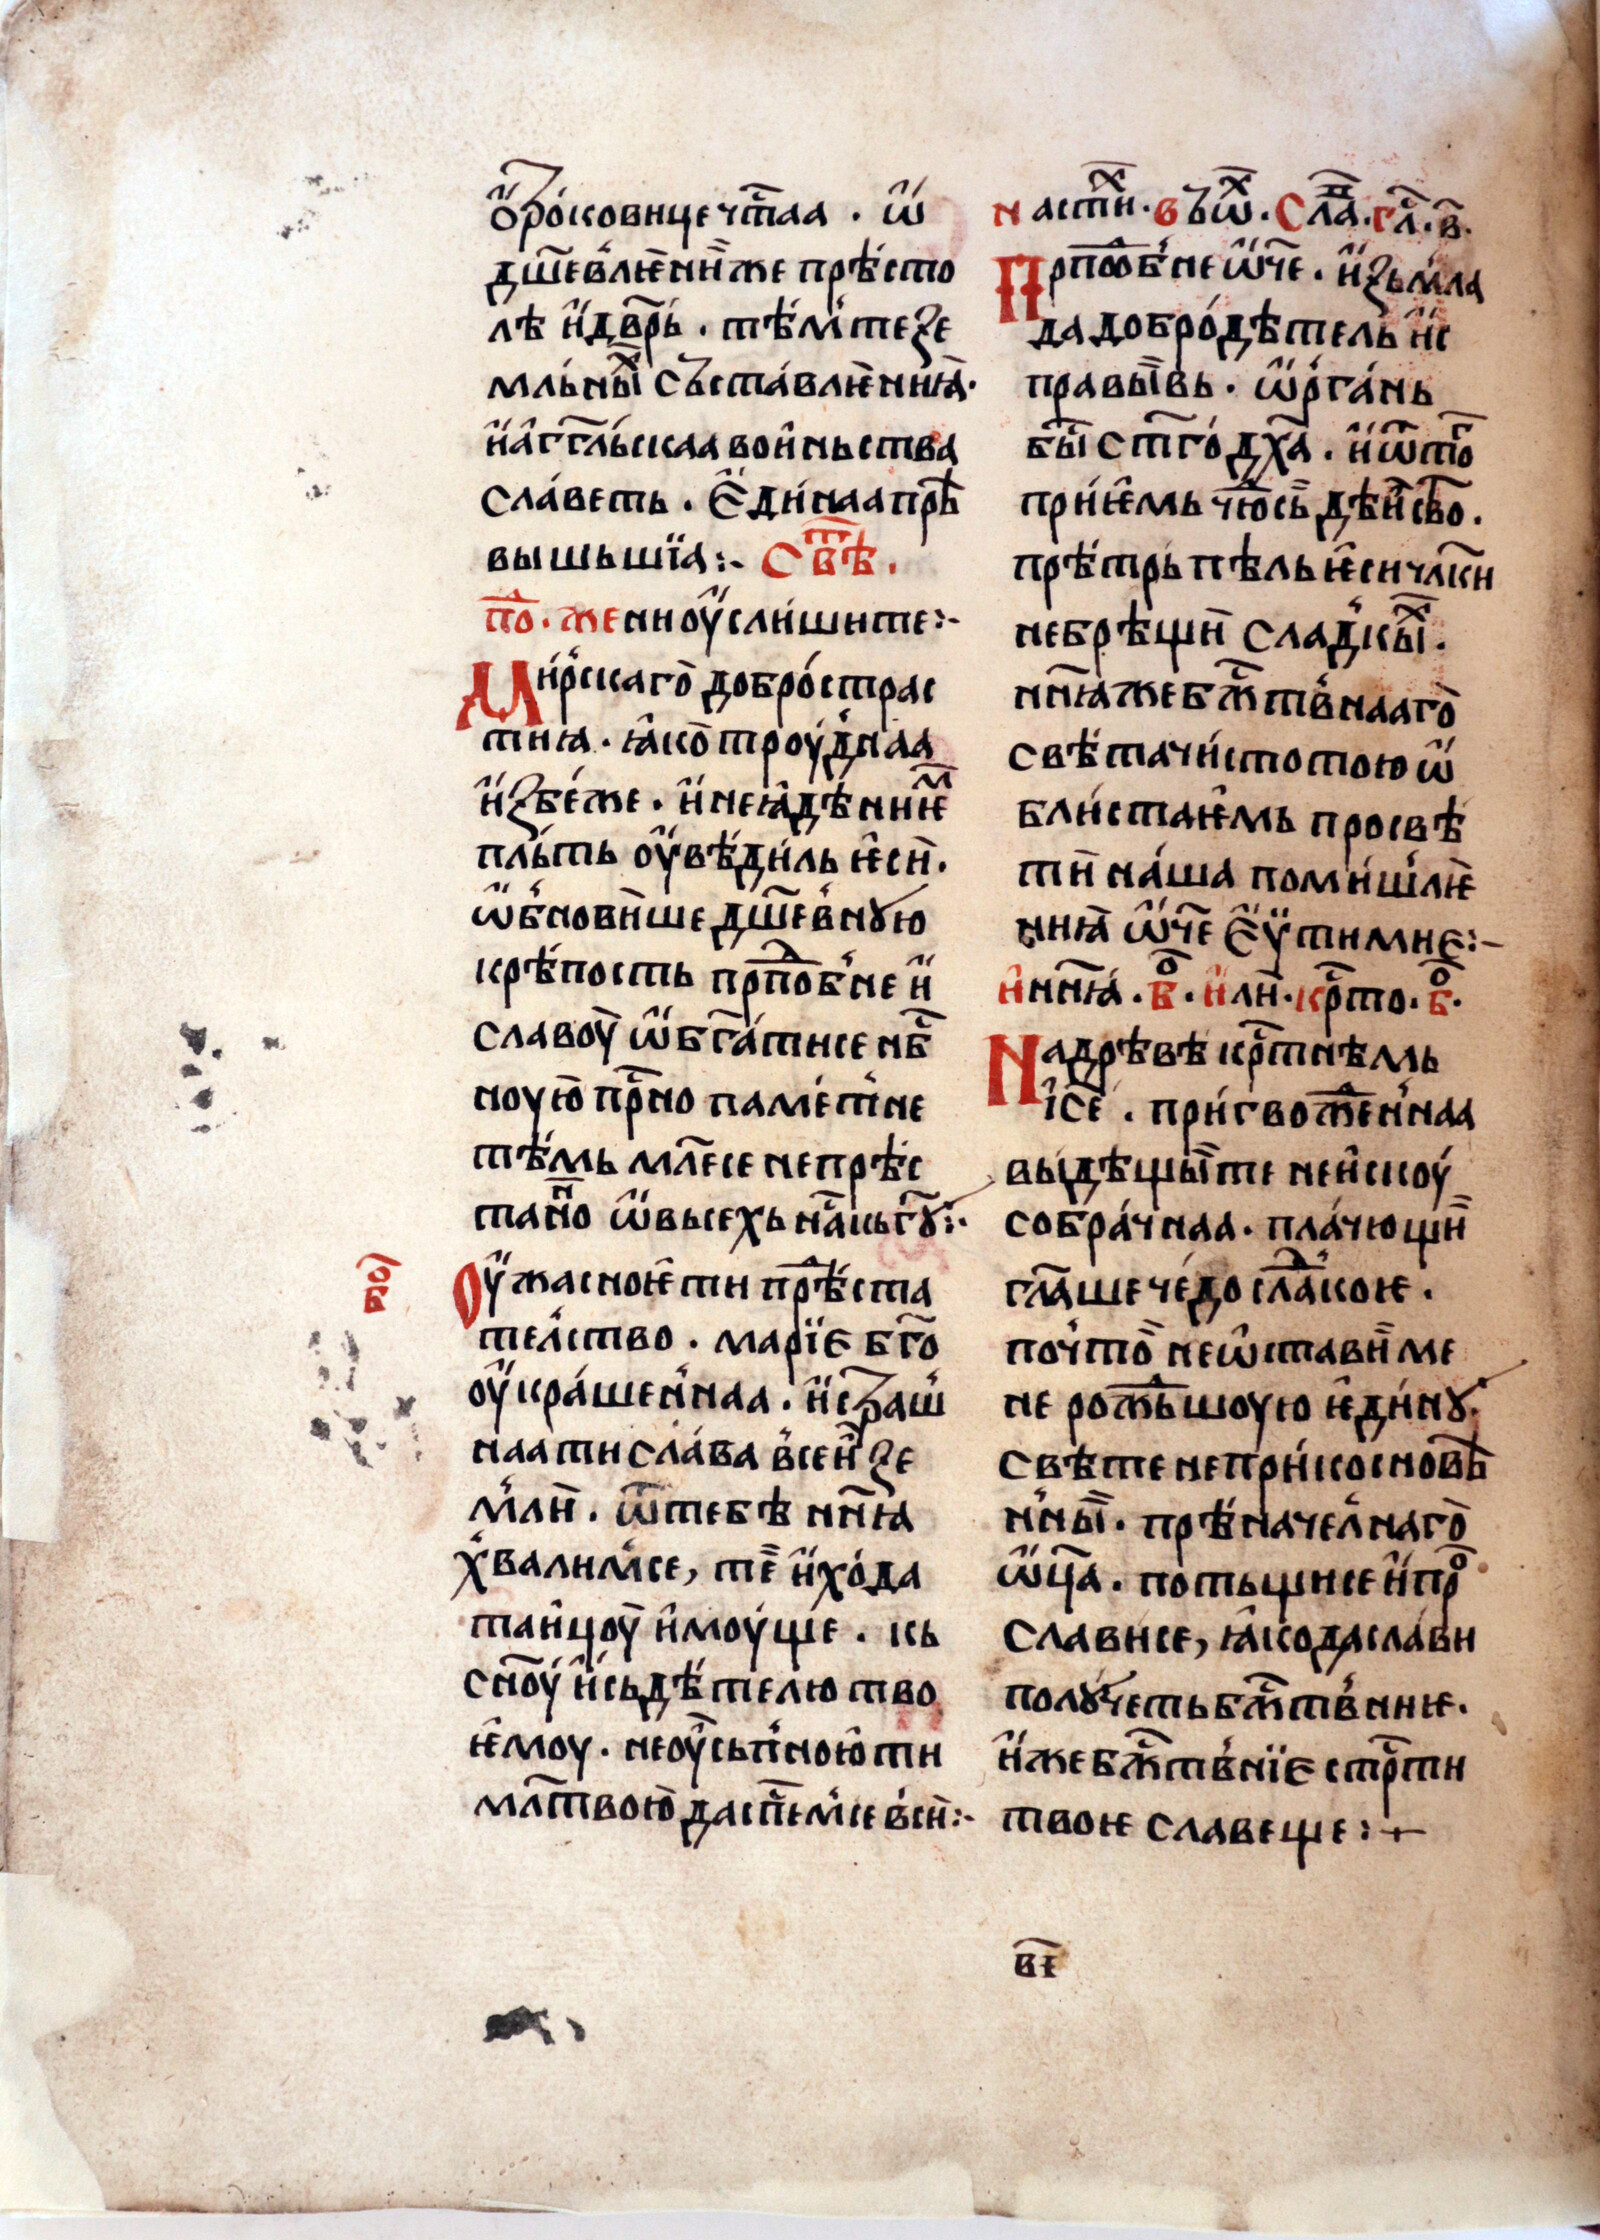 ѻ҆троковице чⷭ҇таа . ѡ҆
дш҃евлѥ́ни́же прѣ́сто
лѣ и҆дв҃рь . тѣ́мⸯтезе
мль́ныⷯ съставлѥ́нїꙗ .
и҆а҆гг҃льскаа вои҆ньства
сла́веть . Є҆ди́наапрѣ
вышьшїа :- Свⷮѣ .
по⁣ⷣ . женноу҆сли́шите :-
Ми́рⸯскаго добро́страс
тиꙗ . ꙗ҆́ко троу́дⸯнаа
и҆збе́же . и҆неꙗ҆дѣ́ниѥⷨ
пль́ть оу҆вѣди́ль ѥ҆си̏ .
ѡ҆бⸯнови́ше дш҃е́внꙋю
крѣ́пость прпⷣобⸯне и҆
славоу ѡ҆бг҃а́тисе нбⷭ҇
ноую прⷭ҇но паме́тⸯне
тѣ́мь млⷭ҇есе непрѣ́с
таⷩ҇но ѡ҆высехь нⷭ҇а кьгꙋ҃ :·
боⷢ
Оу҆жасноѥ҆ти прⷣѣста
телⸯство . марїЄ бг҃о
оу҆кра́шенⸯнаа . и҆страшⸯ
наати сла́ва всеи҆ зе
мⸯли̏ . ѿтебѣ нн҃ꙗ
хⸯвалимⸯсе, те̏ и҆хо́да
таи҆цоу и҆моу́ще . кь
сн҃оу́ и҆сьдѣ́телю тво
ѥ҆моу . неоу҆сьпⸯною҆ти
млⷭ҇твою даспⷭ҇емⸯсе вси̏ :-
настиⷯ . въѡⷯ . Слаⷡ . гл҃а . в҃ .
Прпⷣобⸯне ѡ҆ч҃е . и҆зьмⸯла
да добро́дѣтель и҆с
правы́вь . ѡ҆рⸯга́нь
бы̏ ст҃го́ дх҃а . и҆ѿтоⷢ
при́ѥ҆мь чюⷣсь̏ дѣи҆сво .
прѣ́трь пѣль ѥ҆си члⷭ҇ки
небрѣщи̏ сладⸯкыⷯ .
нн҃ꙗжебжⷭ҇твⸯнааго
свѣ́тачи́стотою ѡ҆
бли́стаѥ҆мь просвѣ
ти̏ на́ша поми́шⸯлѥ
ниꙗ̏ ѡ҆ч҃е Є҆ѵ҆тимиЄ :-
и҆нн҃ꙗ . боⷢ . и҆ли̏ . крⷭ҇то . боⷢ .
Надрѣвѣ крⷭ҇тнѣмь
і҆се҃ . при́гвожⷣенⸯнаа
выдѣщы́те неи҆скоу
собра́чнаа . пла́чющи̏
гл҃аше че́до слаⷣкоѥ .
почⸯто̏ неѡ҆ставы̏ме
не рожⷣьшоую ѥ҆ди́нꙋ .
свѣте непри́косновѣ
нⸯны̏ . прѣ́начелⸯнаго
ѡ҆ц҃а . потьщисе и҆проⷭ
слависе, ꙗ҆кодасла́ви
полꙋ́четь бжⷭ҇твⸯниѥ .
и҆жебжⷭ҇твⸯнїЄ стрⷭ҇ти
твоѥ славеще :- +
в҃і